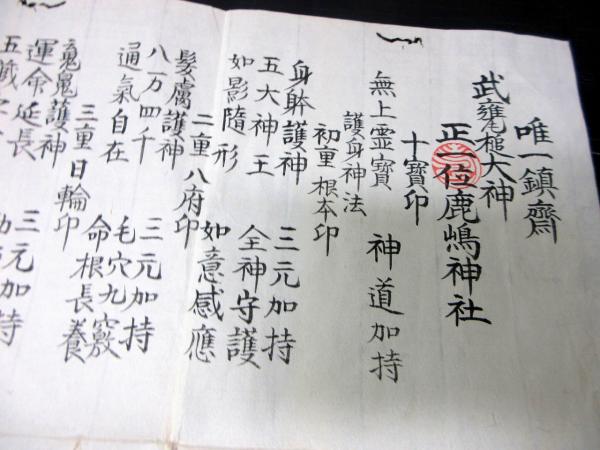 唯一鎮齋
武甕槌大神
正一位鹿嶋神社
十寶印
護身神法
無上霊寶 神道加持
初重根本印
身躰護神 三元加持
五大神王 全神守護
如影隨形 如意感應
二重八府印
髪膚護神 三元加持
八万四千 毛穴九竅
通氣自在 命根長養
三重日輪印
魂鬼護神 三元加持
運命延長
五蔵